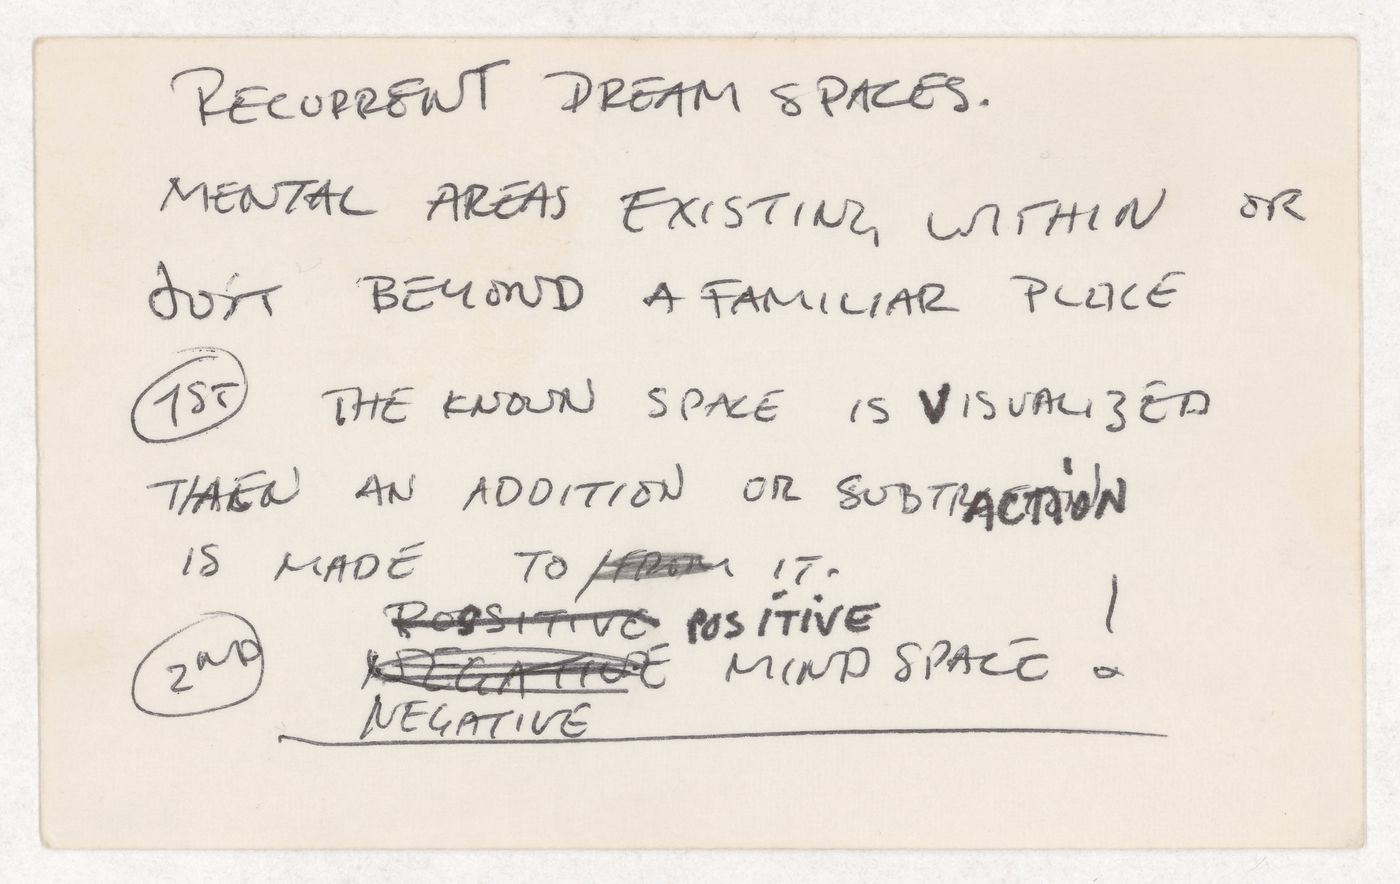 RECURRENT DREAM SPACES.
MENTAL AREAS EXISTING WITHIN OR
JUST BEYOND A FAMILIAR PLACE
1ST THE KNOWN SPACE IS VISUALIZED
THEN AN ADDITION OR SUBTRACTION
IS MADE TO /FROM IT.
POSSITIVE POSITIVE
2ND NEGATIVE MIND SPACE !
NEGATIVE